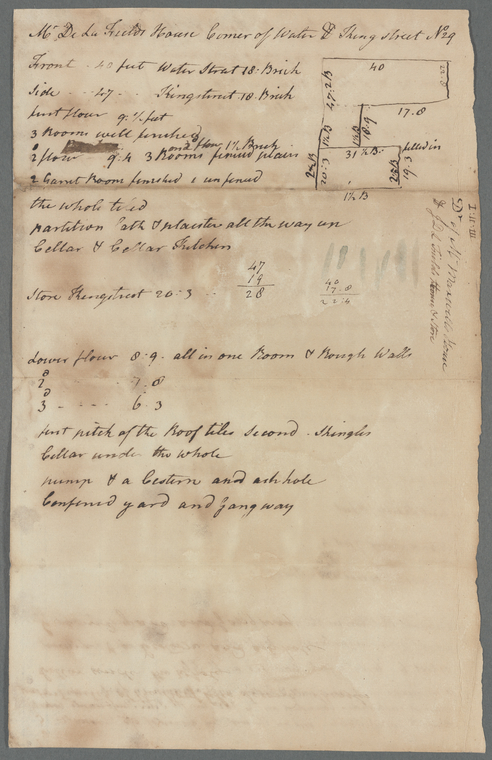 Mr De La Fields House Corner of Water & King street No 29
Front .. 40 feet Water Street 18. Brick
Side .. 47 .. Kingstreet 18. Brick
first flour 9. ½ feet
3 Rooms well finished
on 2d flour 1½ Brick
2d flour 9.4 3 Rooms finised plain
2 Garret Rooms finished 1 unfinised
the whole tiled
partition Lath & plaister all the way up
Cellar & Cellar Kitchen
Store Kingstreet 20:3 ..
47
19
28
40
17.8
22:4
Lower flour 8.9. all in one Room & Rough Walls
2d .... 7.8
3d .... 6.3
first pitch of the Roof tiles second. Shingles
Cellar under the whole
pump & a Cestern and ash hole
Confined yard and gangway
40
47.2B
17.8
1½B
1½B
18.9
filled in
31 ½ B.
2½B
20:3
2½B
19.3
1½B
Dr of Mr Maxwells House
& of De La Fields House & Store